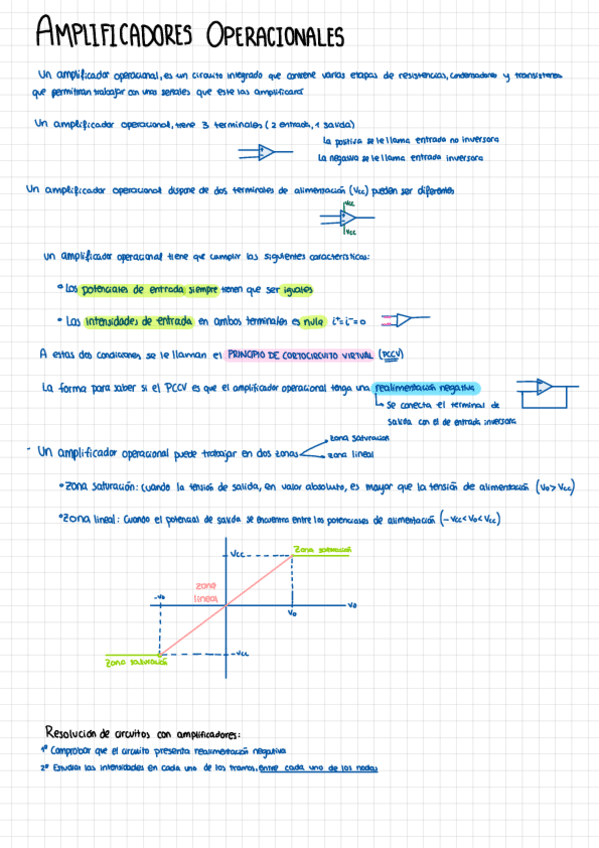 AMPLIFICADORES OPERACIONALES
Un amplificador operacional, es un circuito integrado que contiene varias etapas de resistencias, condensadores y transistores
que permitiran trabajar con unas señales que este las amplificará
Un amplificador operacional, tiene 3 terminales (2 entrada, 1 salida)
La positiva se le llama entrada no inversora
La negativa se le llama entrada inversora
Un amplificador operacional dispone de dos terminales de alimentación (Vcc) pueden ser diferentes
Vcc
Vcc
Un amplificador operacional tiene que cumplir las siguientes características:
• Los potenciales de entrada siempre tienen que ser iguales
• Las intensidades de entrada en ambos terminales es nula i⁺=i⁻=0
A estas dos condiciones, se le llaman el PRINCIPIO DE CORTOCIRCUITO VIRTUAL (PCCV)
La forma para saber si el PCCV es que el amplificador operacional tenga una realimentación negativa
↳ Se conecta el terminal de
salida con el de entrada inversora
- Un amplificador operacional puede trabajar en dos zonas
zona saturación
zona lineal
• Zona saturación: Cuando la tensión de salida, en valor absoluto, es mayor que la tensión de alimentación (Vo > Vcc)
• Zona lineal: Cuando el potencial de salida se encuentra entre los potenciales de alimentación (-Vcc < Vo < Vcc)
Zona saturación
Vcc
zona
lineal
-Vo
Vo
Vo
-Vcc
Zona saturación
Resolución de circuitos con amplificadores:
1º Comprobar que el circuito presenta realimentación negativa
2º Estudiar las intensidades en cada uno de los tramos, entre cada uno de los nodos